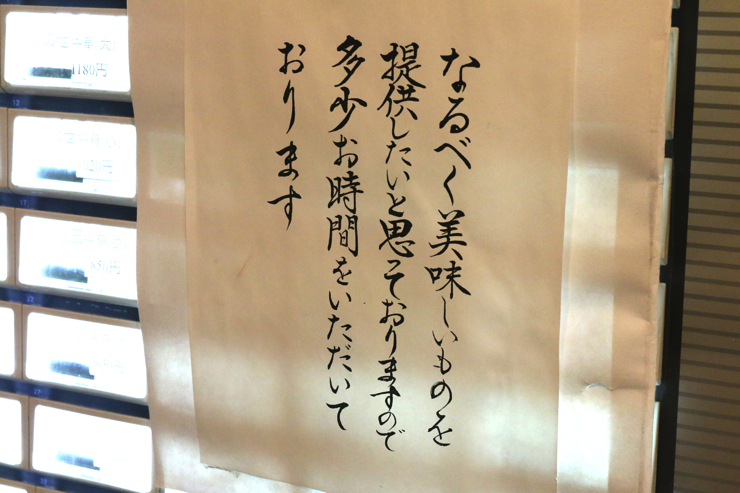 なるべく美味しいものを
提供したいと思っておりますので
多少お時間をいただいて
おります
1180円
850円